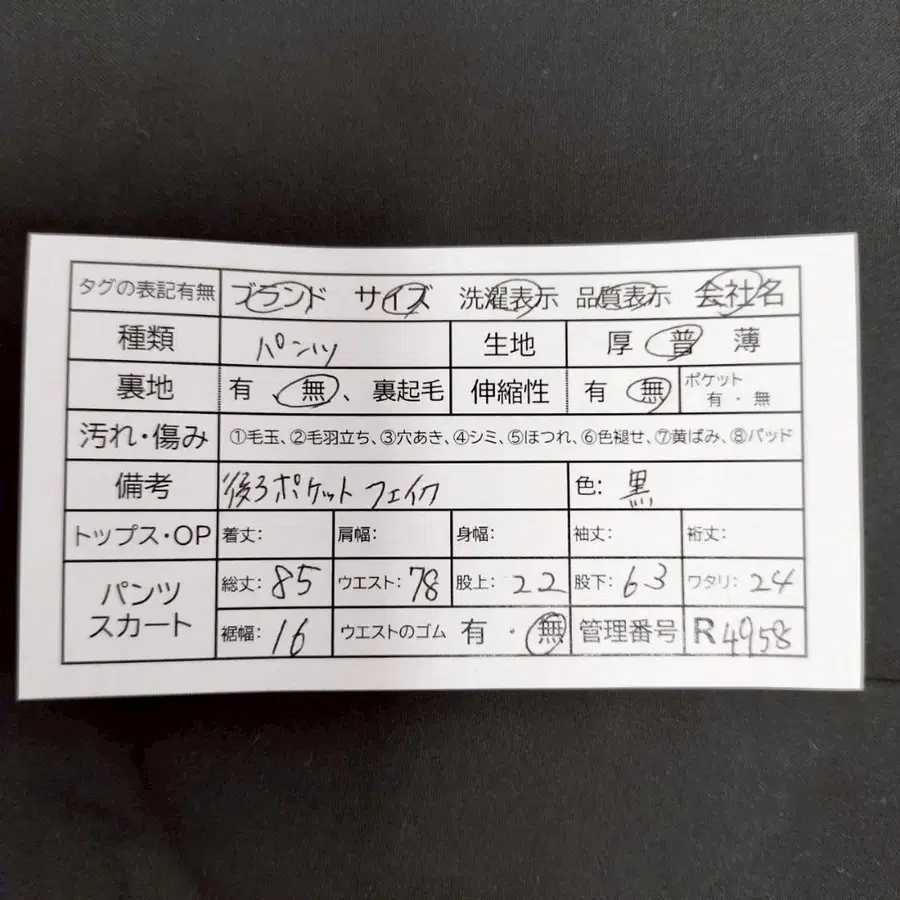 タグの表記有無 ブランド サイズ 洗濯表示 品質表示 会社名
種類 パンツ 生地 厚 普 薄
裏地 有 、無、裏起毛 伸縮性 有 無 ポケット 有・無
汚れ・傷み ①毛玉、②毛羽立ち、③穴あき、④シミ、⑤ほつれ、⑥色褪せ、⑦黄ばみ、⑧パッド
備考 後ろポケット フェイク 色: 黒
トップス・OP 着丈: 肩幅: 身幅: 袖丈: 裄丈:
パンツ スカート 総丈: 85 ウエスト: 78 股上: 22 股下: 63 ワタリ: 24
裾幅: 16 ウエストのゴム 有・無 管理番号 R4958